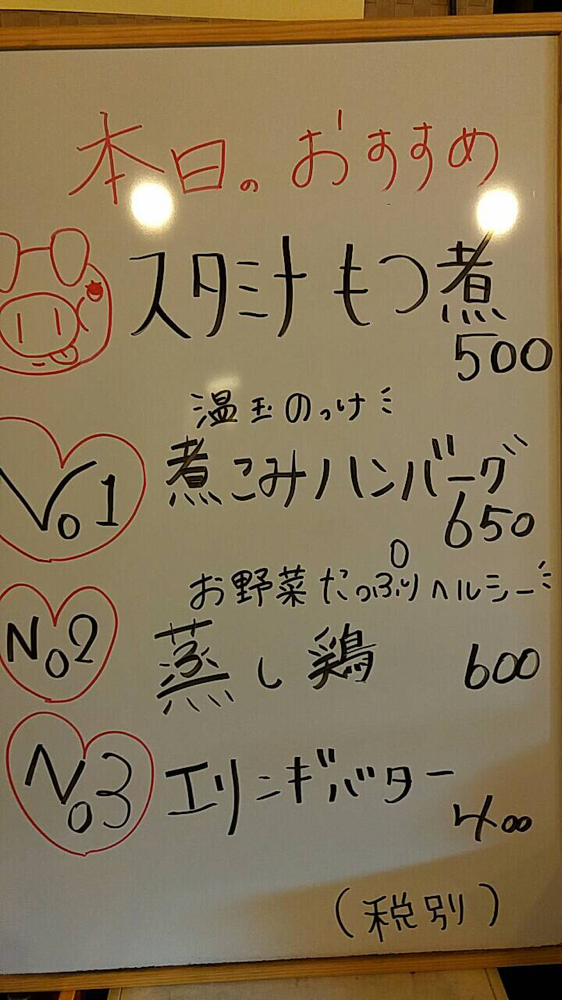 本日のおすすめ
スタミナもつ煮
500
温玉のっけ
No1 煮こみハンバーグ
650
お野菜たっぷりヘルシー
No2 蒸し鶏 600
No3 エリンギバター
400
(税別)